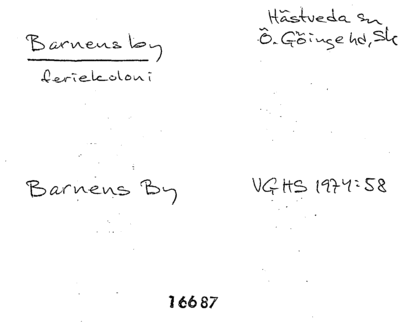 Barnens by
feriekoloni
Hästveda sn
Ö. Göinge hd, Sk
Barnens By
VGHS 1974:58
16687